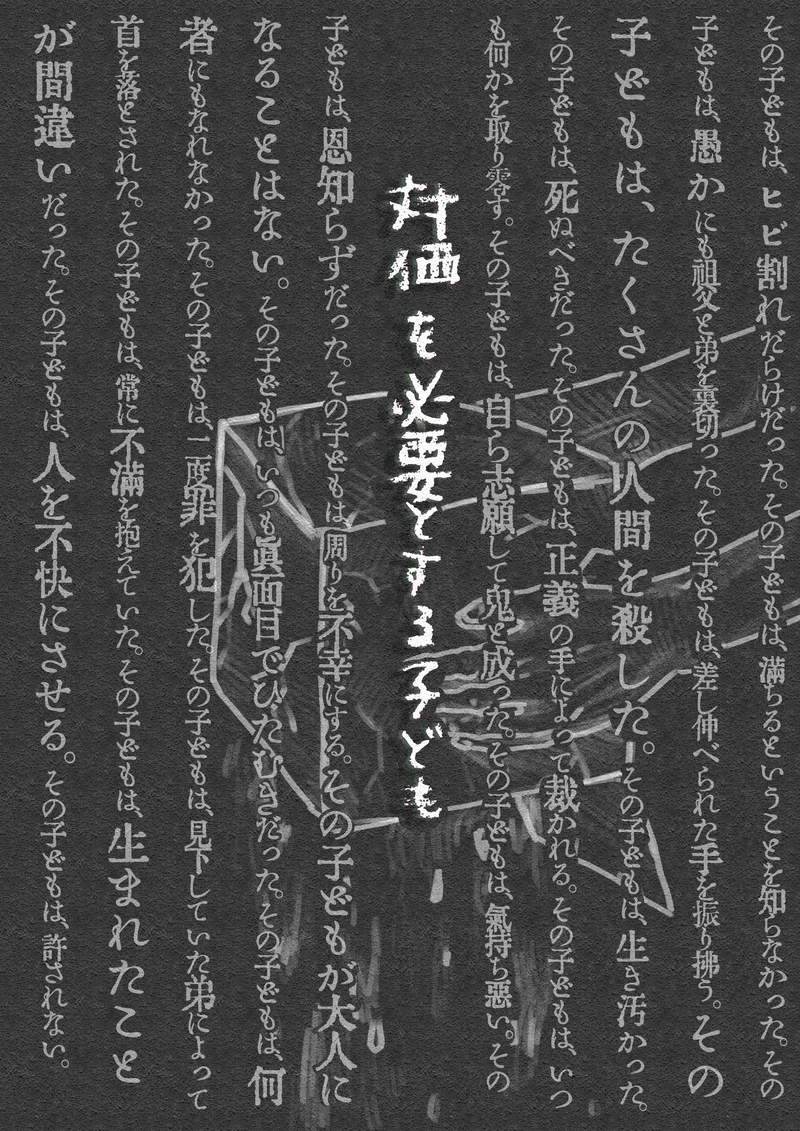 その子どもは、ヒビ割れだらけだった。その子どもは、満ちるということを知らなかった。その
子どもは、愚かにも祖父と弟を裏切った。その子どもは、差し伸べられた手を振り拂う。その
子どもは、たくさんの人間を殺した。その子どもは、生き汚かった。
その子どもは、死ぬべきだった。その子どもは、正義の手によって裁かれる。その子どもは、いつ
も何かを取り零す。その子どもは、自ら志願して鬼と成った。その子どもは、氣持ち悪い。その
対価を必要とする子ども
子どもは、恩知らずだった。その子どもは、周りを不幸にする。その子どもが大人に
なることはない。その子どもは、いつも眞面目でひたむきだった。その子どもは、何
者にもなれなかった。その子どもは、二度罪を犯した。その子どもは、見下していた弟によって
首を落とされた。その子どもは、常に不滿を抱えていた。その子どもは、生まれたこと
が間違いだった。その子どもは、人を不快にさせる。その子どもは、許されない。